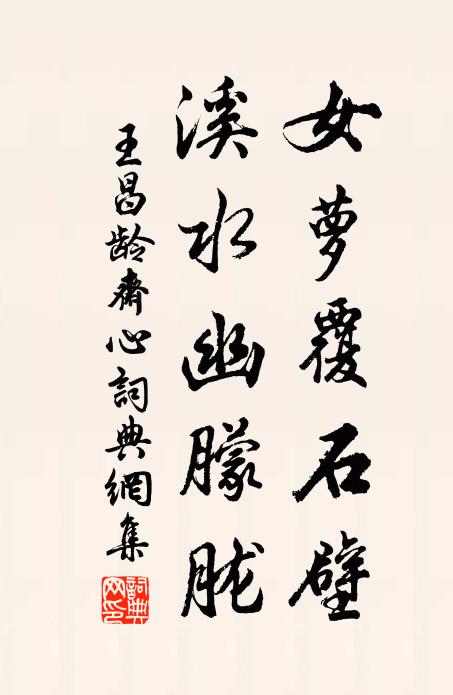 女萝覆石壁
溪水幽朦胧
王昌龄齋心詞典網集
詞典网印